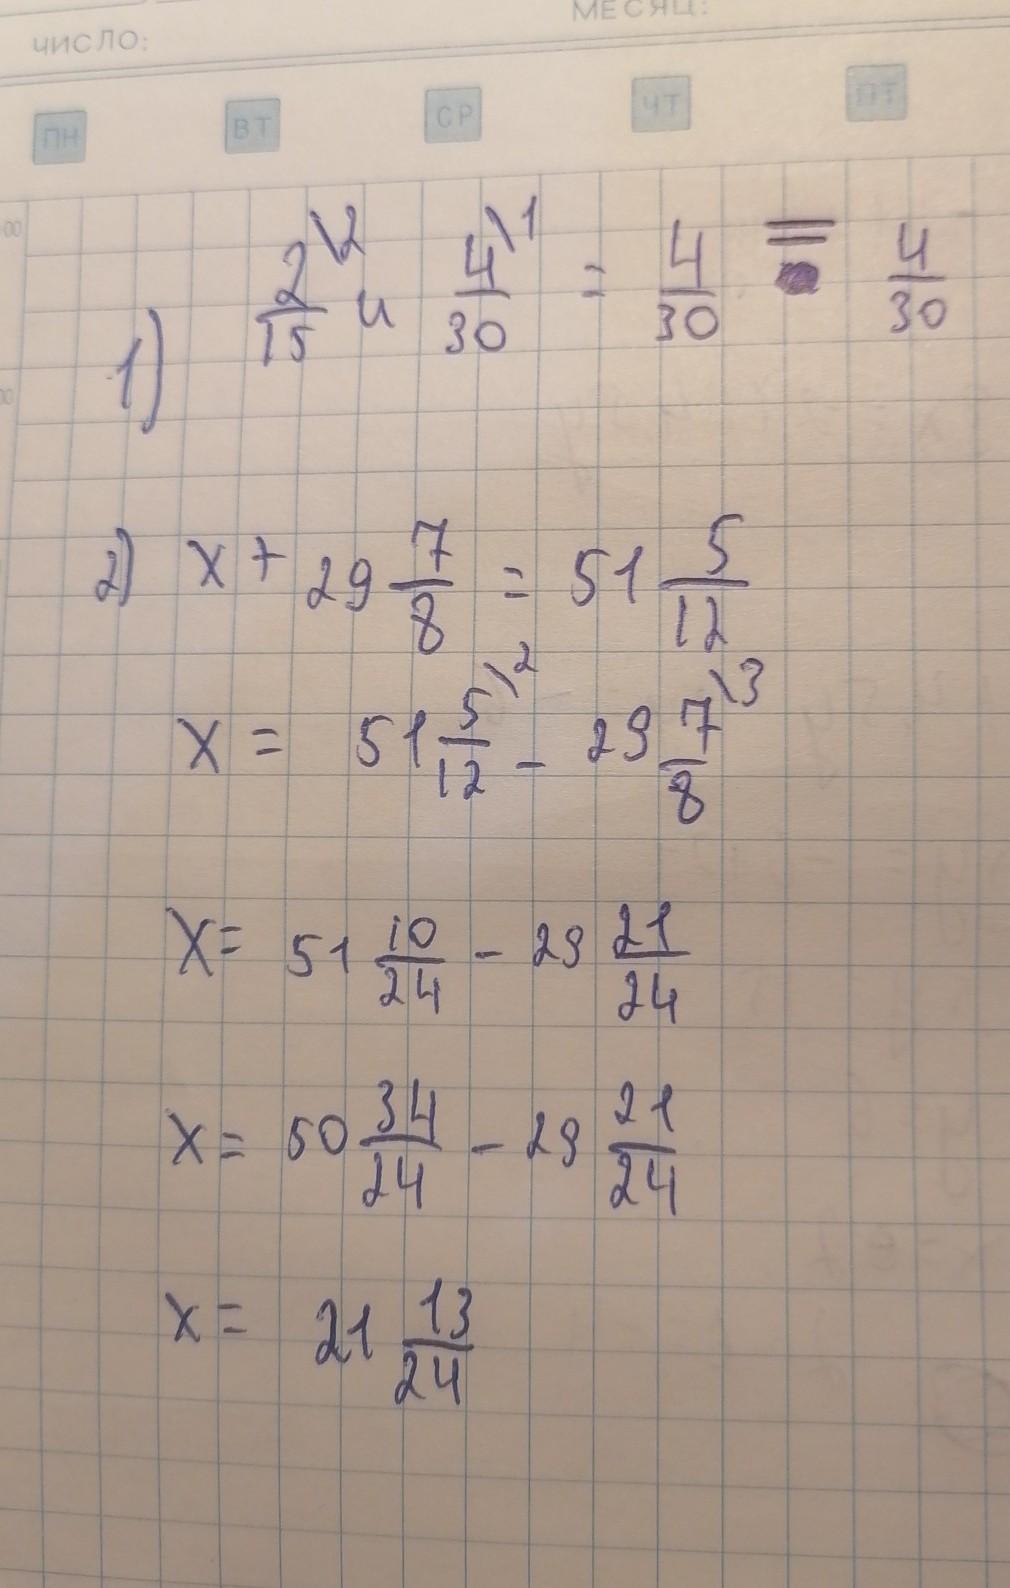 МЕСЯЦ:
ЧИСЛО:
ПН ВТ СР ЧТ ПТ
00
00
1) 2/15 \2 и 4/30 \1 = 4/30 = 4/30
2) x + 29 7/8 = 51 5/12
x = 51 5/12 \2 - 29 7/8 \3
x = 51 10/24 - 29 21/24
x = 50 34/24 - 29 21/24
x = 21 13/24